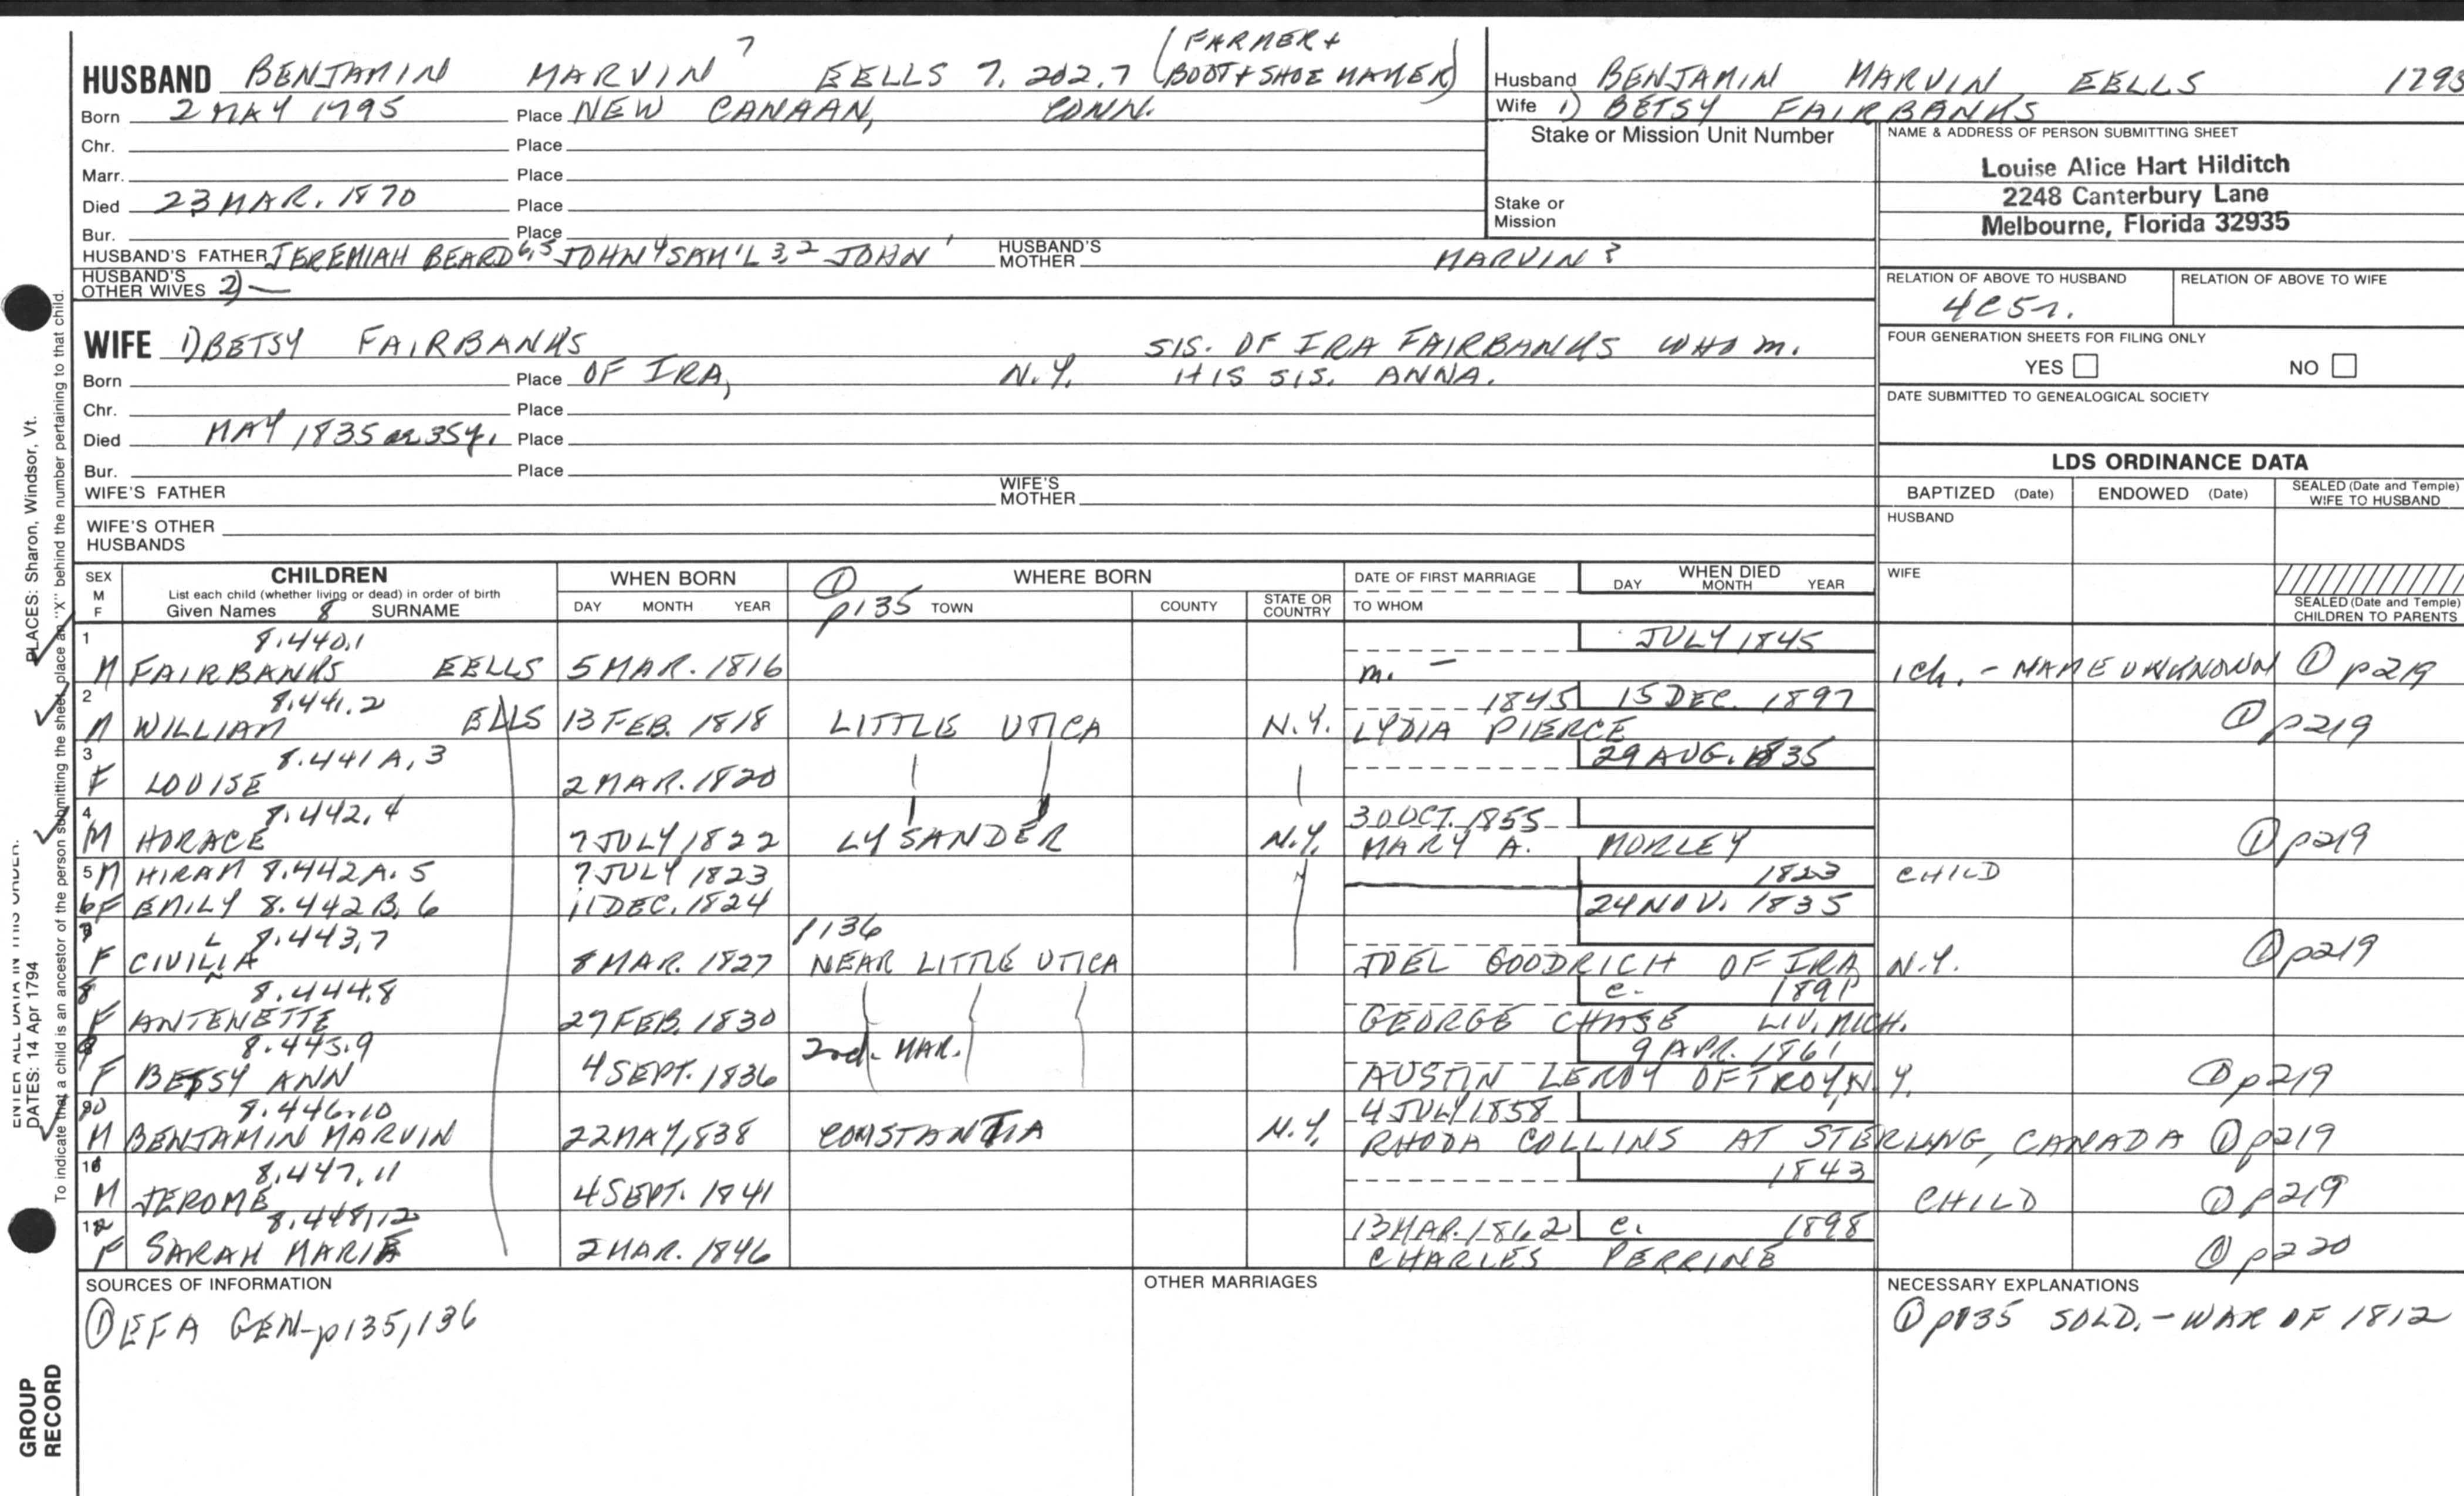 HUSBAND BENJAMIN MARVIN 7 EELLS 7. 202.7 (FARMER + BOOT + SHOE MAKER)
Born 2 MAY 1795 Place NEW CANAAN, CONN.
Chr. Place
Marr. Place
Died 23 MAR. 1870 Place
Bur. Place
HUSBAND'S FATHER JEREMIAH BEARD 6,5 JOHN 4 SAM'L 3,2 JOHN 1 HUSBAND'S MOTHER MARVIN ?
HUSBAND'S OTHER WIVES 2) —
Husband BENJAMIN MARVIN EELLS 1795
Wife 1) BETSY FAIRBANKS
Stake or Mission Unit Number
Stake or Mission
NAME & ADDRESS OF PERSON SUBMITTING SHEET
Louise Alice Hart Hilditch
2248 Canterbury Lane
Melbourne, Florida 32935
RELATION OF ABOVE TO HUSBAND RELATION OF ABOVE TO WIFE
4C5r.
FOUR GENERATION SHEETS FOR FILING ONLY
YES NO
DATE SUBMITTED TO GENEALOGICAL SOCIETY
WIFE 1) BETSY FAIRBANKS SIS. OF IRA FAIRBANKS WHO m.
Born Place OF IRA, N.Y. HIS SIS. ANNA.
Chr. Place
Died MAY 1835 ae 35 y. Place
Bur. Place
WIFE'S FATHER WIFE'S MOTHER
WIFE'S OTHER HUSBANDS
LDS ORDINANCE DATA
BAPTIZED (Date) ENDOWED (Date) SEALED (Date and Temple) WIFE TO HUSBAND
HUSBAND
WIFE
SEALED (Date and Temple) CHILDREN TO PARENTS
SEX M F CHILDREN WHEN BORN ① p135 WHERE BORN DATE OF FIRST MARRIAGE WHEN DIED
List each child (whether living or dead) in order of birth
Given Names 8 SURNAME DAY MONTH YEAR TOWN COUNTY STATE OR COUNTRY TO WHOM DAY MONTH YEAR
1 8.440.1 JULY 1845
M FAIRBANKS EELLS 5 MAR. 1816 m. — 1 ch. - NAME UNKNOWN ① p219
2 8.441.2 1845 15 DEC. 1897
M WILLIAM ELLS 13 FEB. 1818 LITTLE UTICA N.Y. LYDIA PIERCE ① p219
3 8.441A.3 29 AUG. 1835
F LOUISE 2 MAR. 1820
4 8.442.4 30 OCT. 1855
M HORACE 7 JULY 1822 LYSANDER N.Y. MARY A. MORLEY ① p219
5 M HIRAM 8.442A.5 7 JULY 1823 1823 CHILD
6 F EMILY 8.442B.6 11 DEC. 1824 24 NOV. 1835
7 8.443.7 p136
F CIVILLA 8 MAR. 1827 NEAR LITTLE UTICA JOEL GOODRICH OF IRA N.Y. ① p219
8 8.444.8 c. 1891
F ANTENETTE 27 FEB. 1830 GEORGE CHASE LIV. MICH.
8.445.9 2nd. MAR. 9 APR. 1861
F BETSY ANN 4 SEPT. 1836 AUSTIN LEROY OF TROY, N.Y. ① p219
10 8.446.10 4 JULY 1858
M BENJAMIN MARVIN 22 MAY, 1838 CONSTANTIA N.Y. RHODA COLLINS AT STERLING, CANADA ① p219
8.447.11 1843
M JEROME 4 SEPT. 1841 CHILD ① p219
12 8.448.12 13 MAR. 1862 c. 1898
F SARAH MARIA 2 MAR. 1846 CHARLES PERRINE ① p220
SOURCES OF INFORMATION OTHER MARRIAGES NECESSARY EXPLANATIONS
① EFA GEN-p135,136 ① p135 SOLD. - WAR OF 1812
PLACES: Sharon, Windsor, Vt.
ENTER ALL DATA IN THIS ORDER:
DATES: 14 Apr 1794
To indicate that a child is an ancestor of the person submitting the sheet, place an "X" behind the number pertaining to that child.
GROUP RECORD